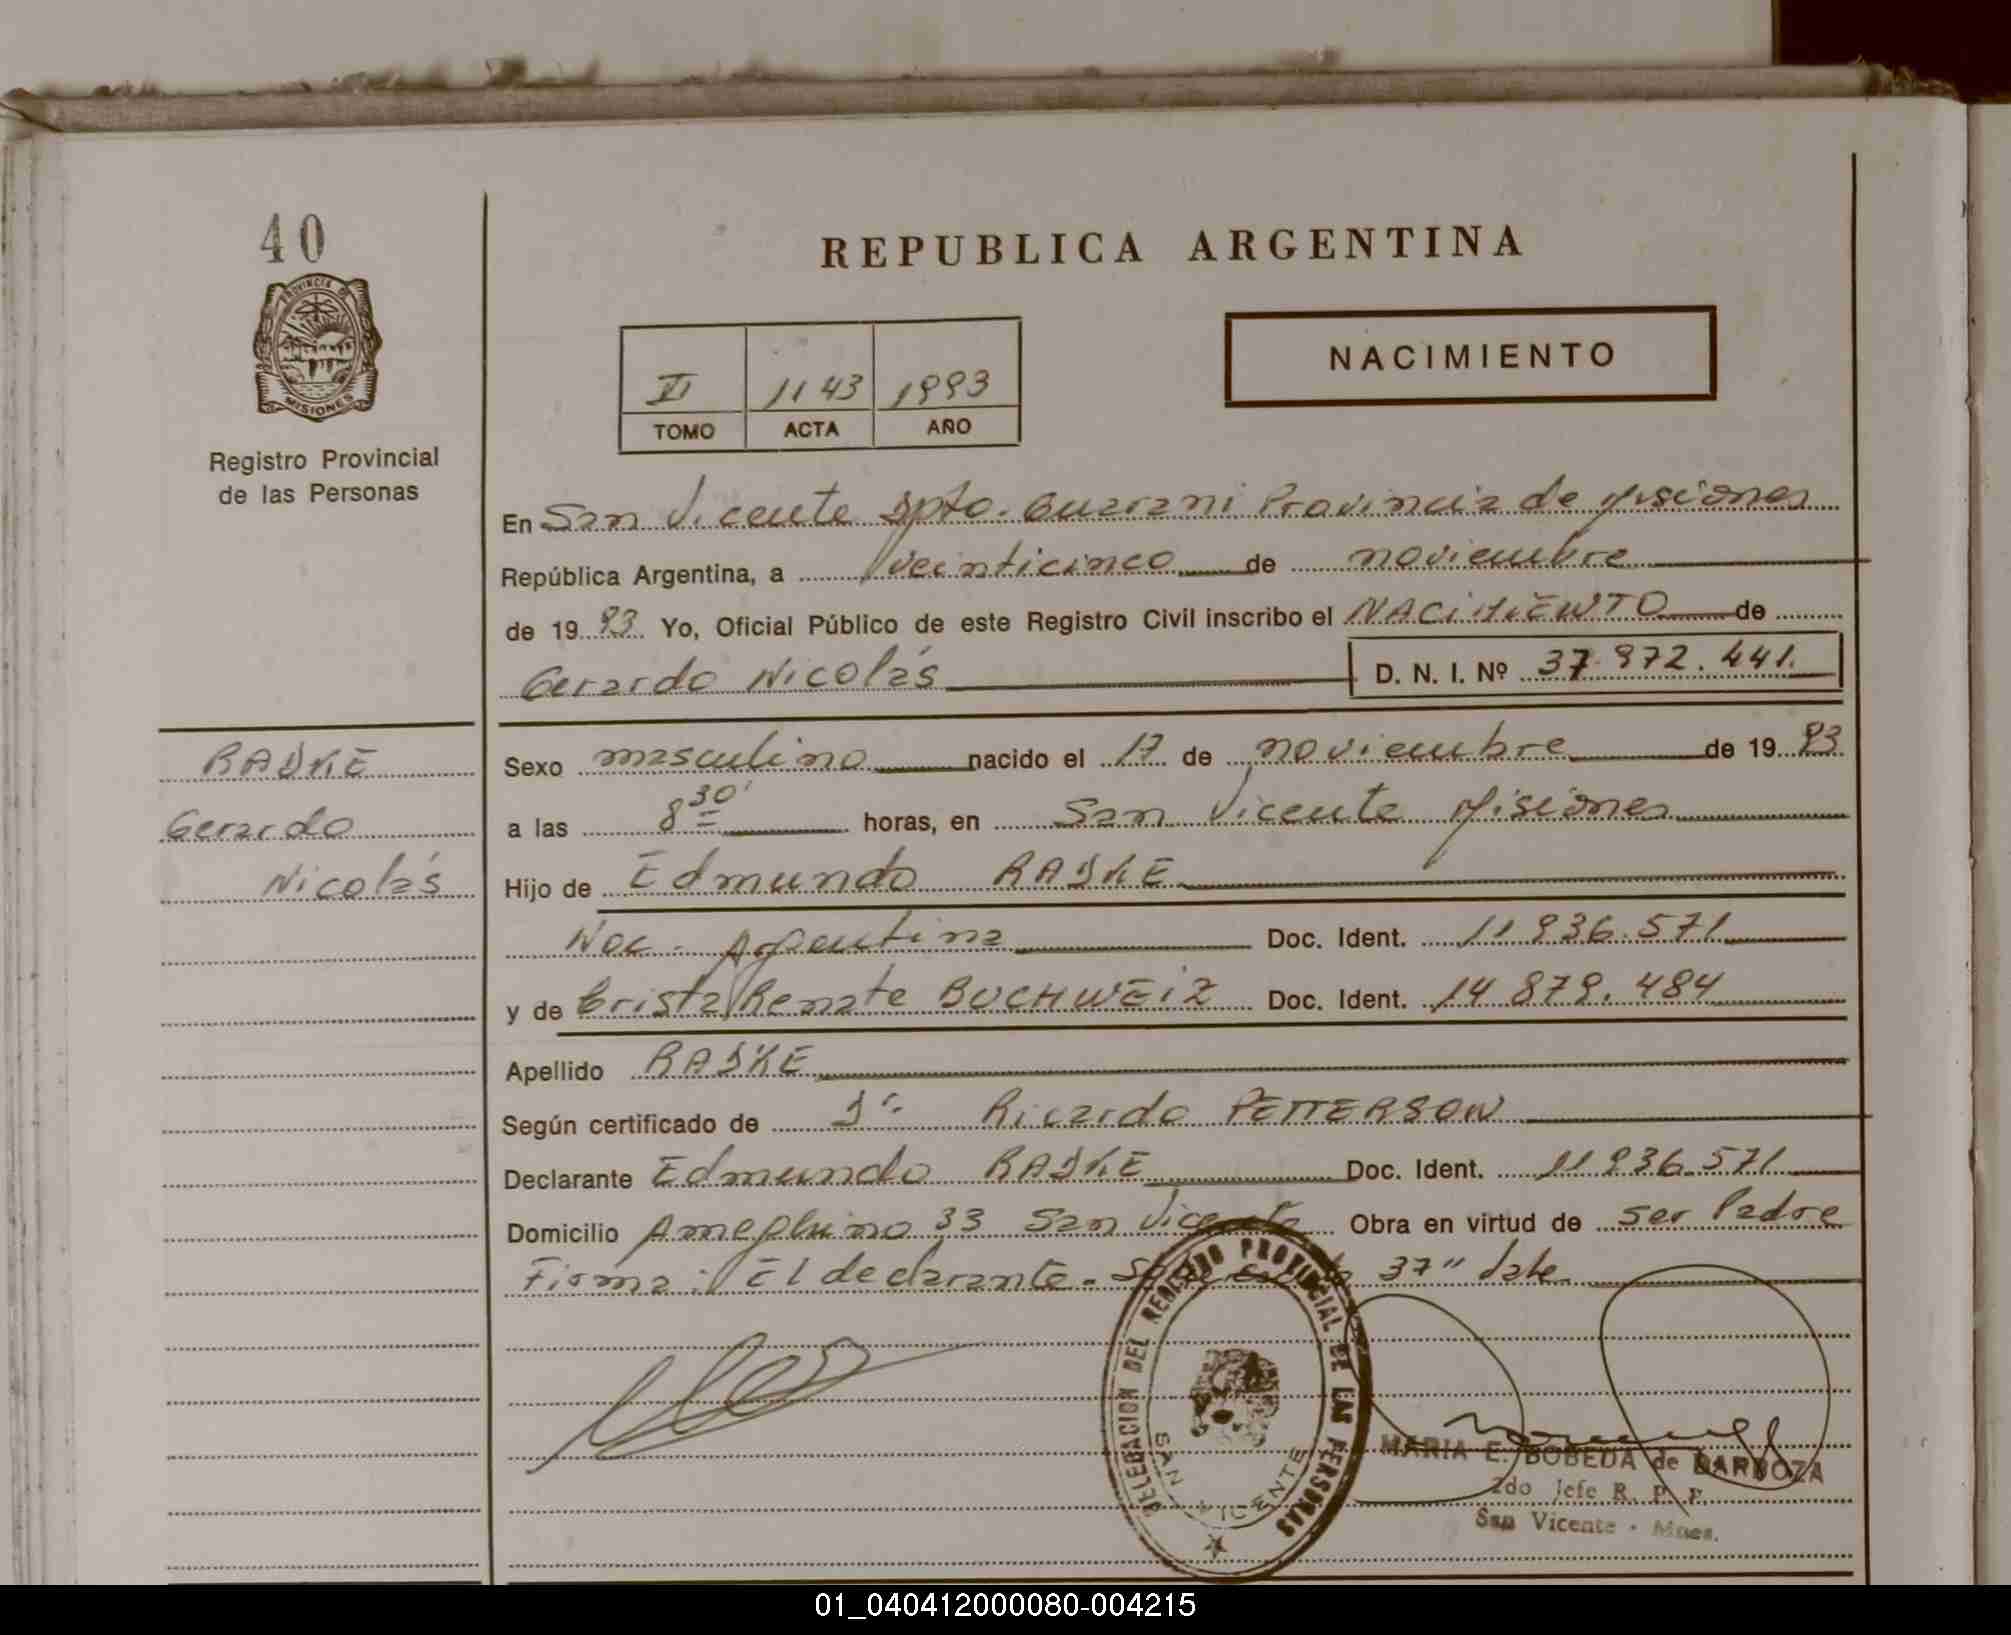 40
REPUBLICA ARGENTINA
PROVINCIA DE
MISIONES
Registro Provincial
de las Personas
VI 1143 1993
TOMO ACTA AÑO
NACIMIENTO
En San Vicente Dpto. Guarani Provincia de Misiones
República Argentina, a veinticinco de noviembre
de 1993 Yo, Oficial Público de este Registro Civil inscribo el NACIMIENTO de
Gerardo Nicolás D. N. I. Nº 37.972.441.
RADKE
Gerardo
Nicolás
Sexo masculino nacido el 17 de noviembre de 1993
a las 8 30' horas, en San Vicente Misiones
Hijo de Edmundo RADKE
Nac. Argentina Doc. Ident. 11 936.571
y de Crista Renate BUCHWEIZ Doc. Ident. 14 879.484
Apellido RADKE
Según certificado de Dr. Ricardo PETTERSON
Declarante Edmundo RADKE Doc. Ident. 11 936.571
Domicilio Ameghino 33 San Vicente Obra en virtud de ser Padre
Firma: El declarante. 37" Vale
DELEGACION DEL REGISTRO PROVINCIAL DE LAS PERSONAS
SAN VICENTE
MARIA E. BOBEDA de BARBOZA
2do Jefe R. P. P.
San Vicente - Mnes.
01_040412000080-004215